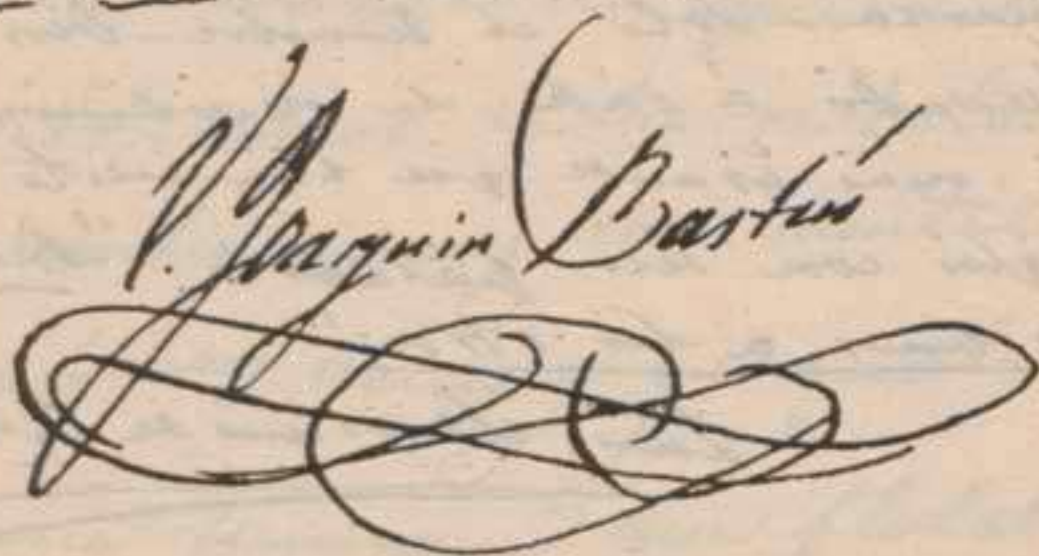 V. Joaquin Bastús